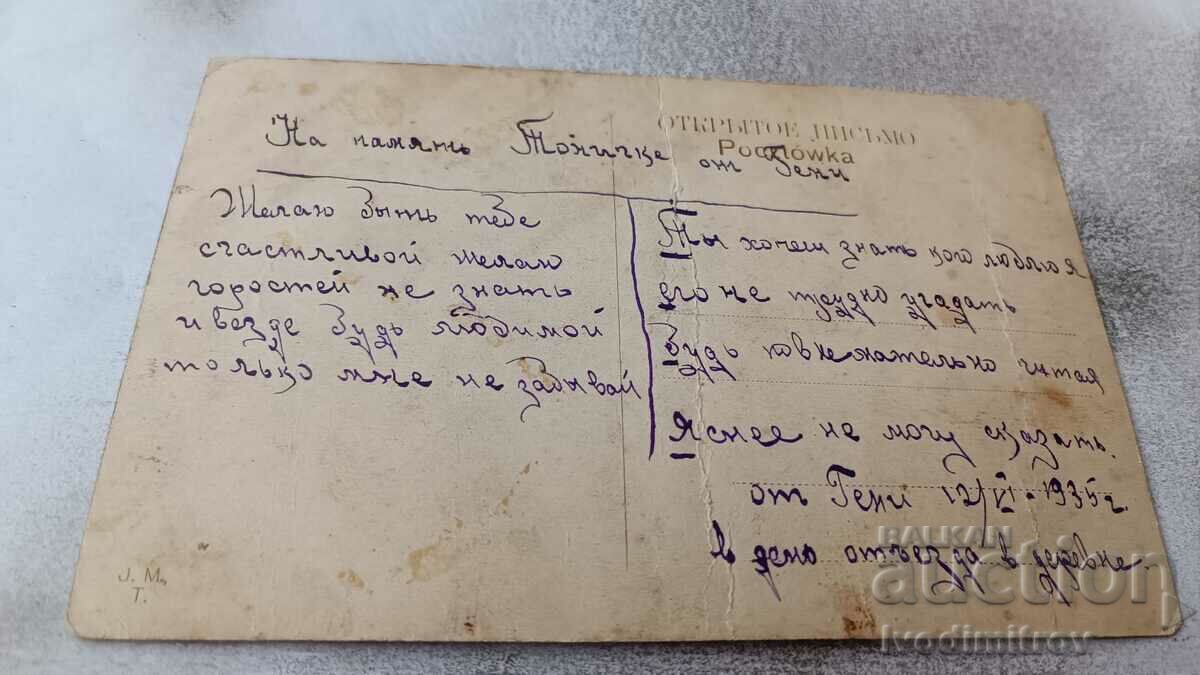 ОТКРЫТОЕ ПИСЬМО
Pocztówka
На память Тоничке от Гени
Желаю быть тебе
счастливой желаю
горостей не знать
и везде будь любимой
только мне не забывай
Ты хочеш знать кого люблю я
его не трудно угадать
Будь повнежательно читая
Яснее не могу сказать.
от Гени 12/VI-1935г.
в день отъезда в деревне
J. M.
T.
BALKAN
auction
Ivodimitrov